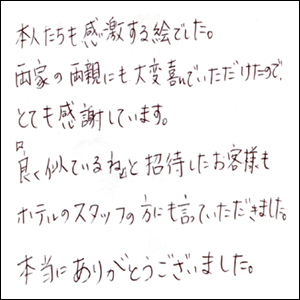 本人たちも感激する絵でした。
両家の両親にも大変喜んでいただけたので、
とても感謝しています。
良く似ているねと招待したお客様も
ホテルのスタッフの方にも言っていただきました。
本当にありがとうございました。